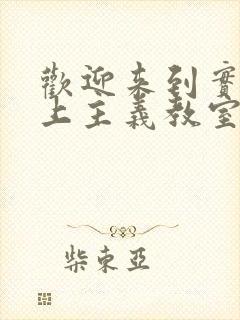 歡迎来到實
上主義教室
柴東亞